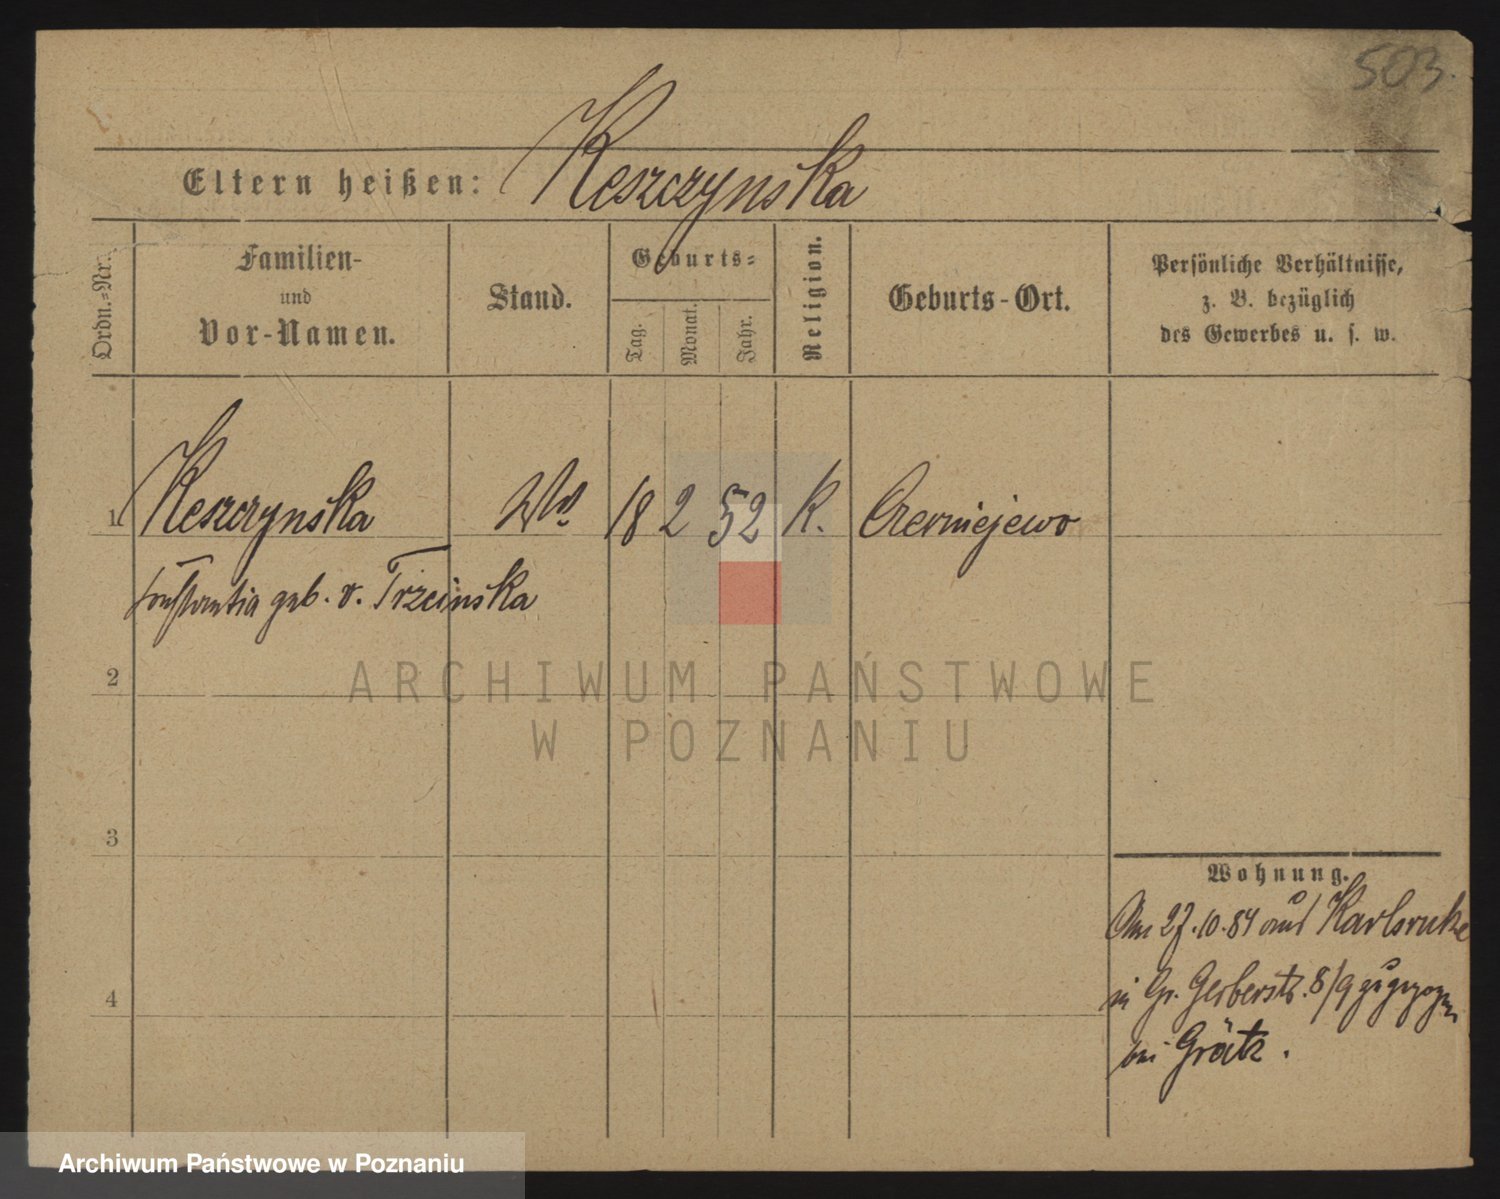 503.
Eltern heißen: Keszczynska
Ordn.=Nr.
Familien-
und
Vor-Namen.
Stand.
Geburts=
Tag.
Monat.
Jahr.
Religion.
Geburts-Ort.
Persönliche Verhältnisse,
z. B. bezüglich
des Gewerbes u. s. w.
1 Keszczynska Ww. 18 2 52 K. Czerniejewo
Constantia geb. v. Trzcinska
2
ARCHIWUM PAŃSTWOWE
W POZNANIU
3
Wohnung.
Am 27.10.84 aus Karlsruhe
4
in Gr. Gerberstr. 8/9 zugezogen
bei Grätz.
Archiwum Państwowe w Poznaniu